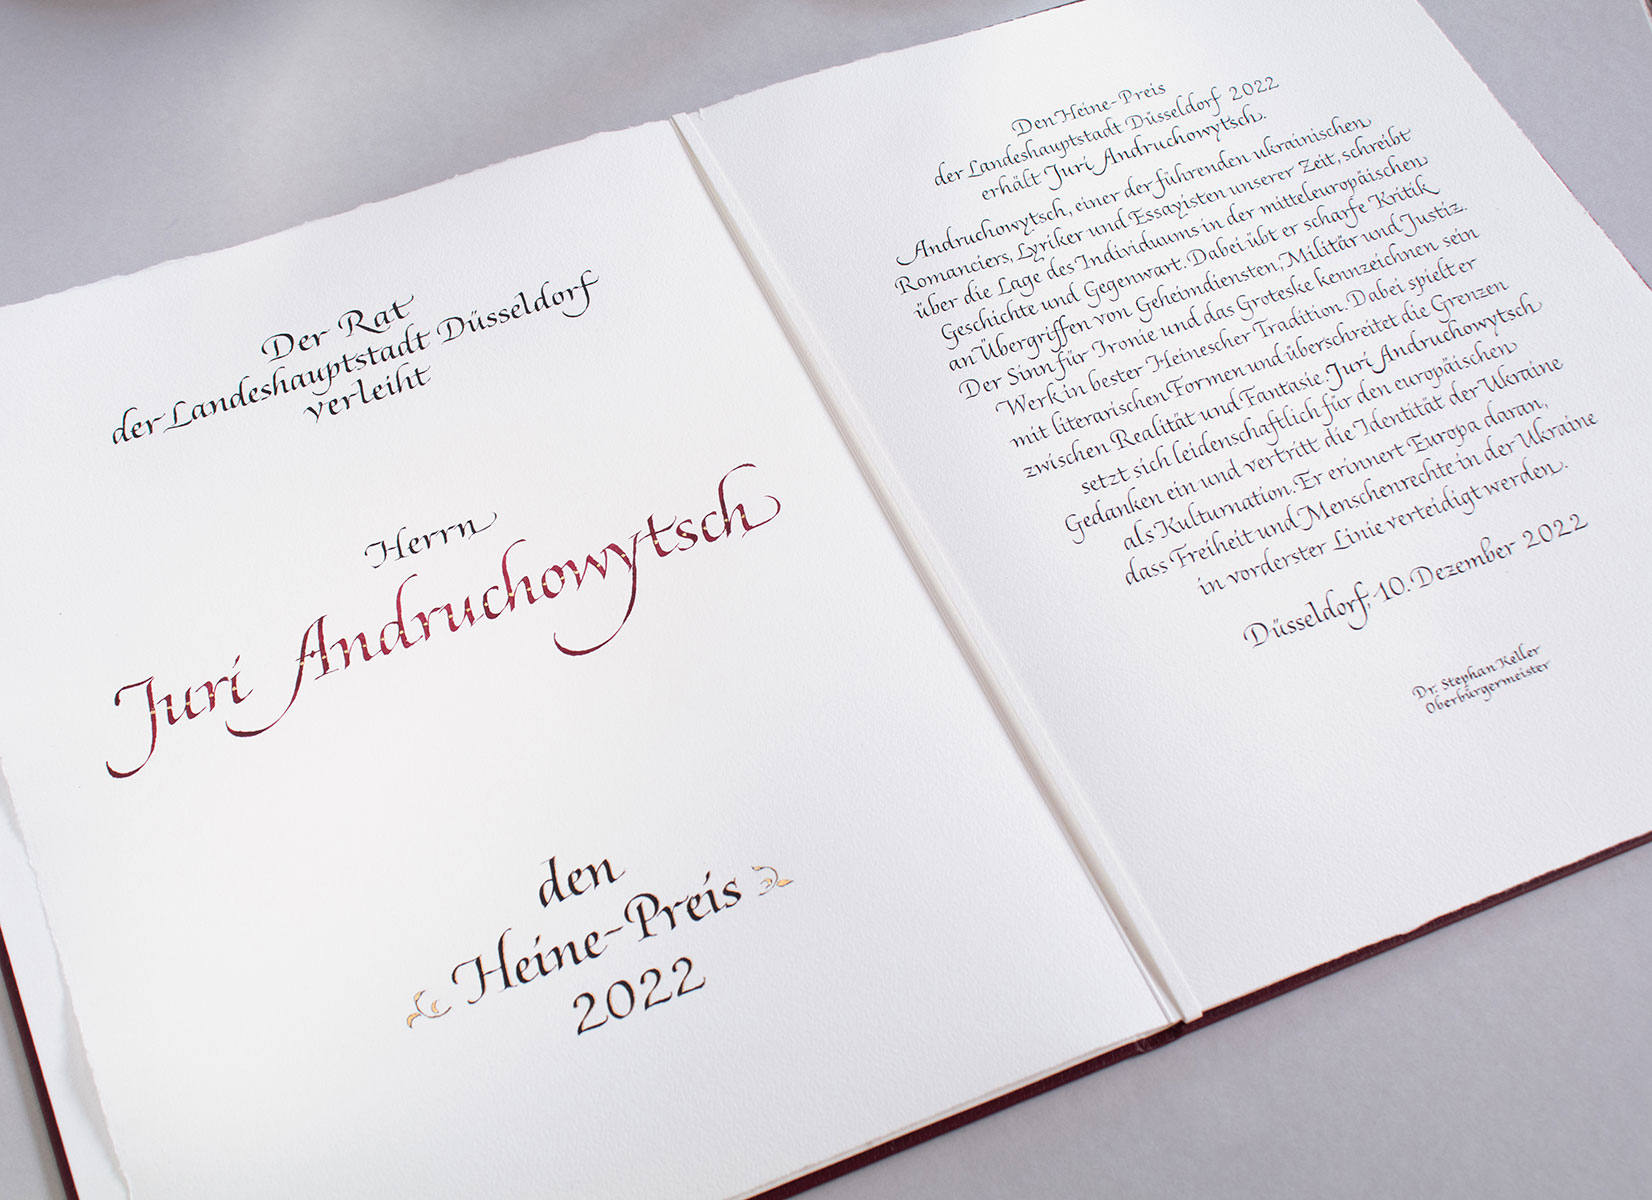 Der Rat
der Landeshauptstadt Düsseldorf
verleiht
Herrn
Juri Andruchowytsch
den
Heine-Preis
2022
Den Heine-Preis
der Landeshauptstadt Düsseldorf 2022
erhält Juri Andruchowytsch.
Andruchowytsch, einer der führenden ukrainischen
Romanciers, Lyriker und Essayisten unserer Zeit, schreibt
über die Lage des Individuums in der mitteleuropäischen
Geschichte und Gegenwart. Dabei übt er scharfe Kritik
an Übergriffen von Geheimdiensten, Militär und Justiz.
Der Sinn für Ironie und das Groteske kennzeichnen sein
Werk in bester Heinescher Tradition. Dabei spielt er
mit literarischen Formen und überschreitet die Grenzen
zwischen Realität und Fantasie. Juri Andruchowytsch
setzt sich leidenschaftlich für den europäischen
Gedanken ein und vertritt die Identität der Ukraine
als Kulturnation. Er erinnert Europa daran,
dass Freiheit und Menschenrechte in der Ukraine
in vorderster Linie verteidigt werden.
Düsseldorf, 10. Dezember 2022
Dr. Stephan Keller
Oberbürgermeister